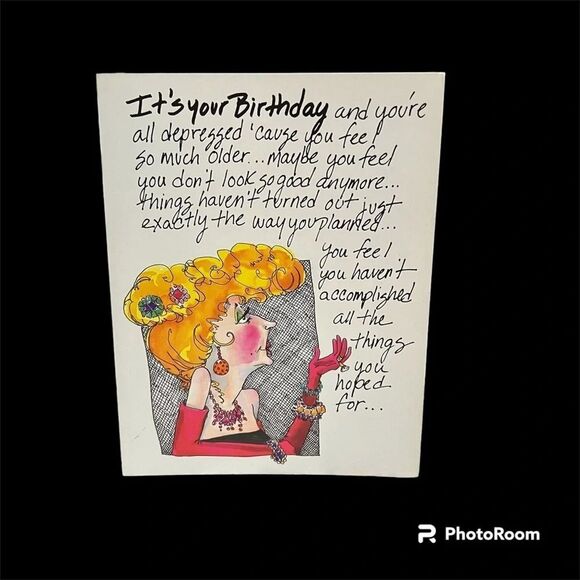 It's your Birthday and you're
all depressed 'cause you feel
so much older... maybe you feel
you don't look so good anymore...
things haven't turned out just
exactly the way you planned...
you feel
you haven't
accomplished
all the
things
you
hoped
for...
PhotoRoom